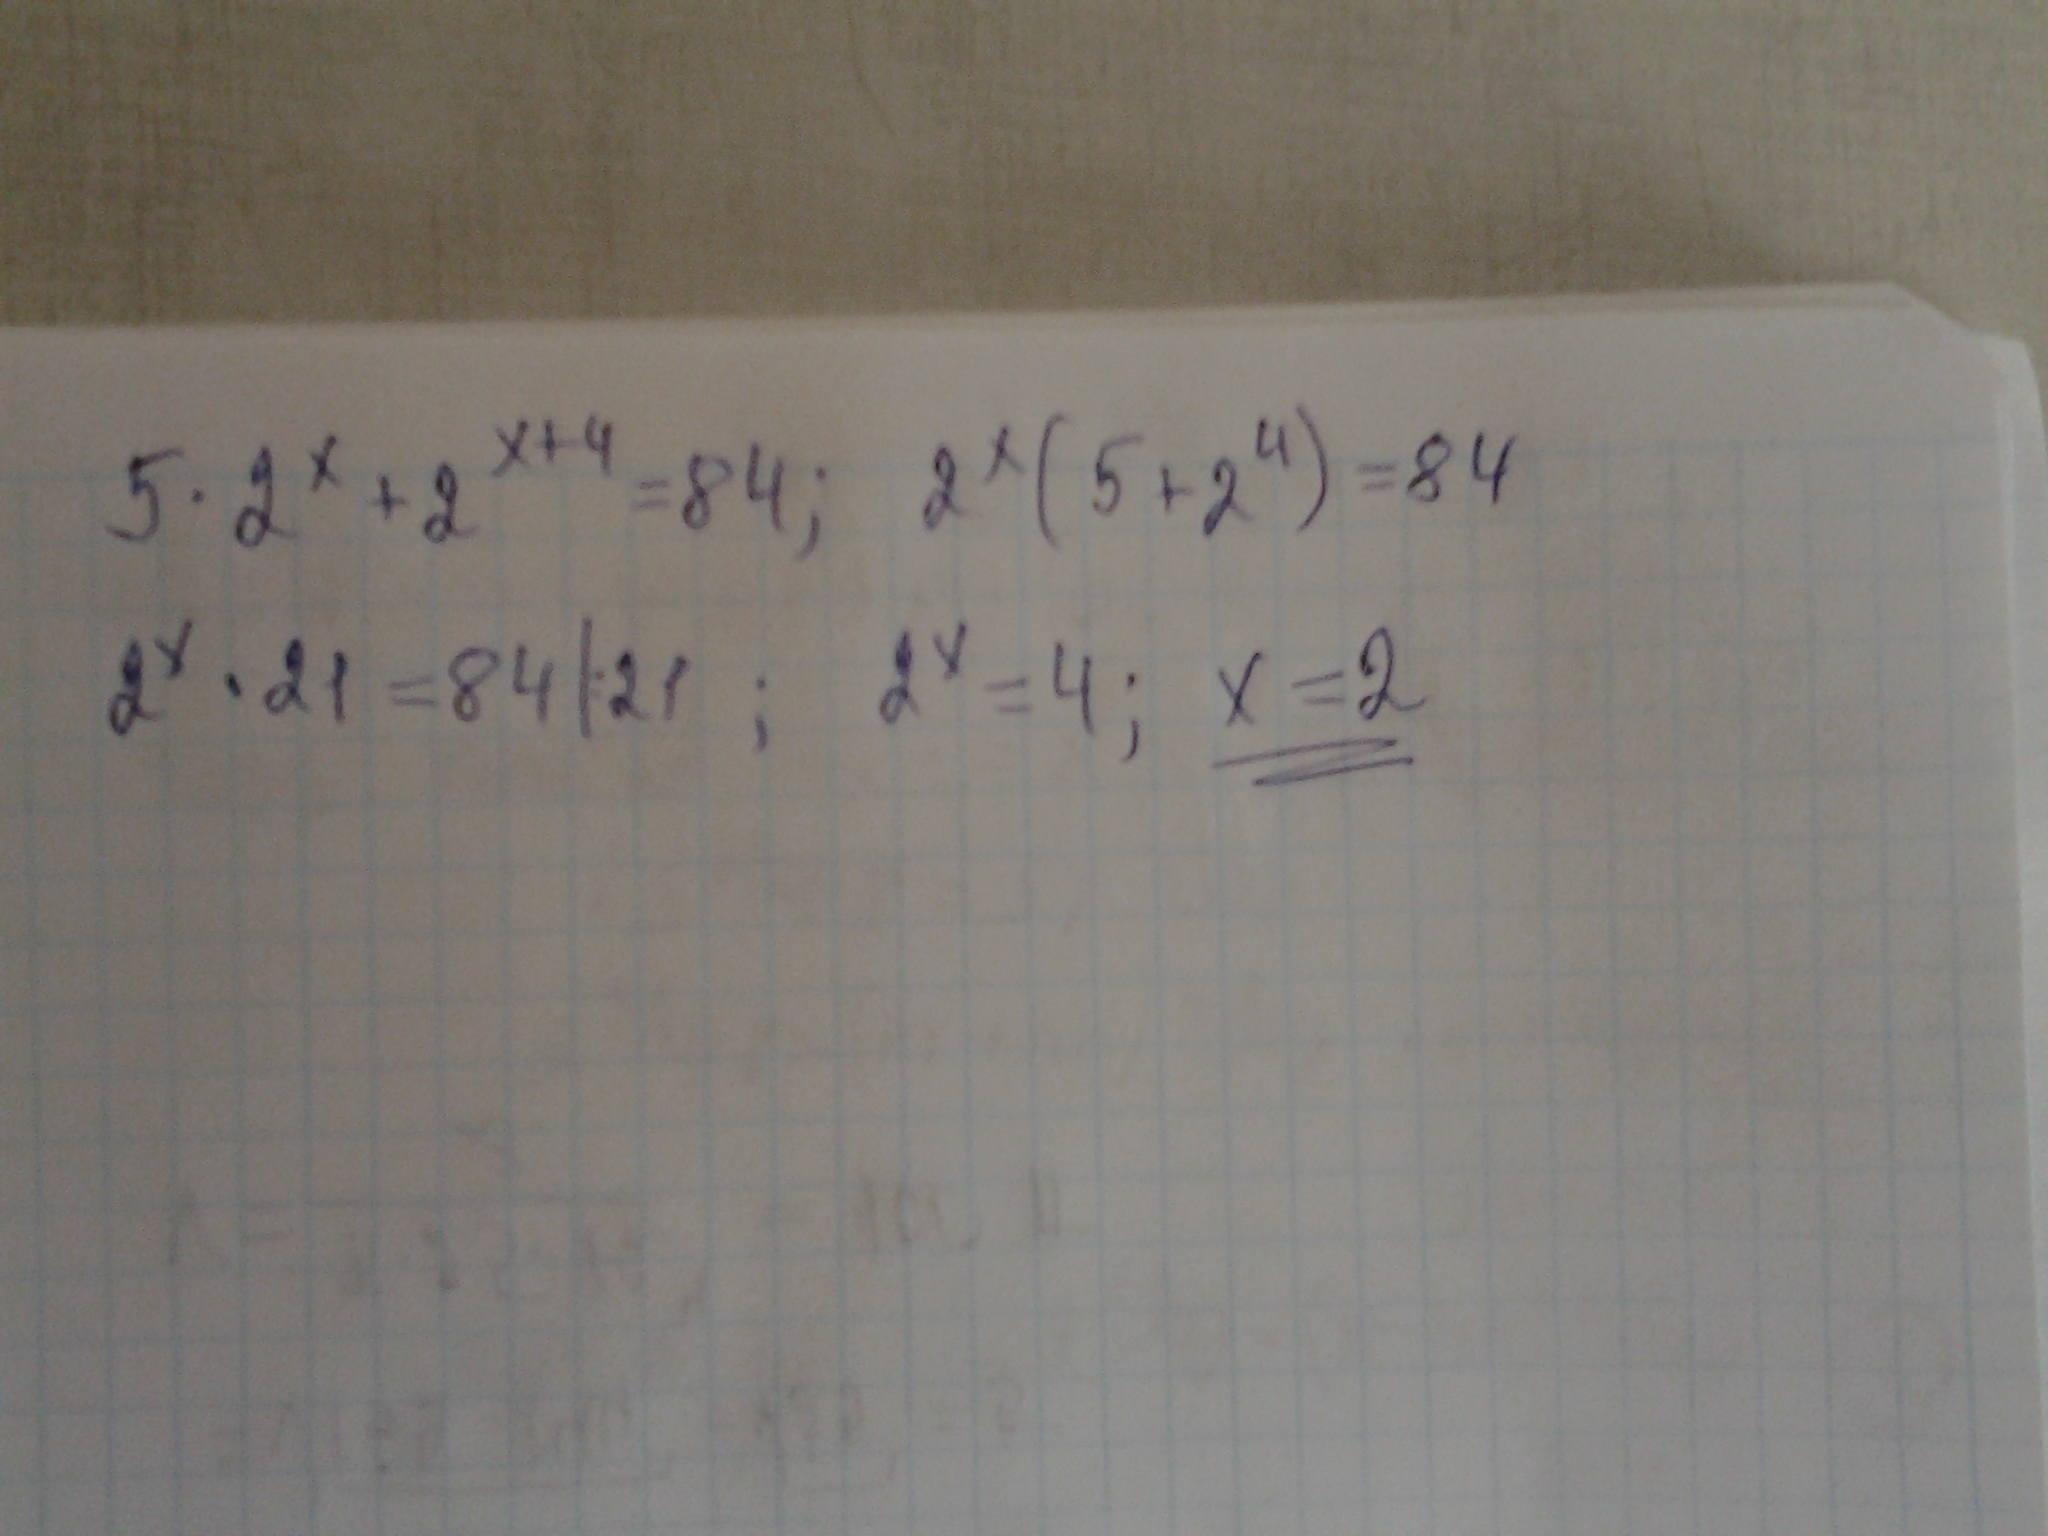 5 · 2ˣ + 2ˣ⁺⁴ = 84; 2ˣ(5 + 2⁴) = 84
2ˣ · 21 = 84 |:21 ; 2ˣ = 4; x = 2